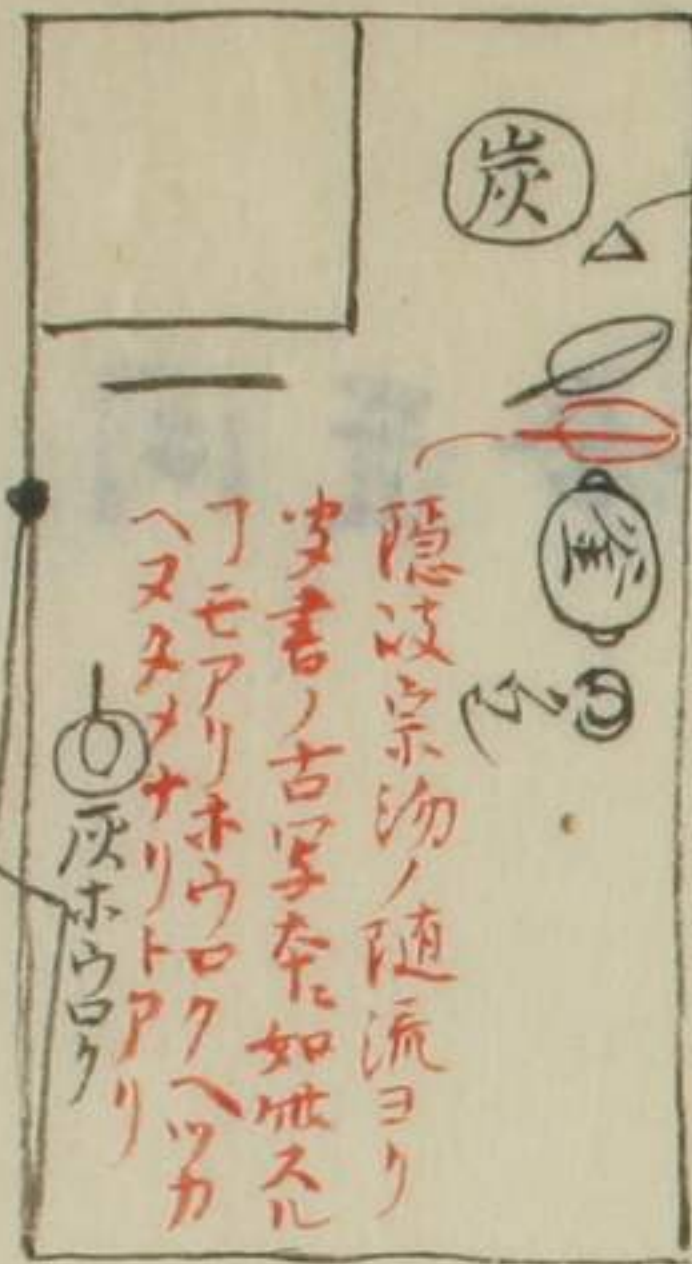 炭
釜
隠岐宗沕ノ随流ヨリ
書ノ古写本ニ如此スル
ヿモアリホウロクヘツカ
ヘヌタメナリトアリ
灰ホウロク